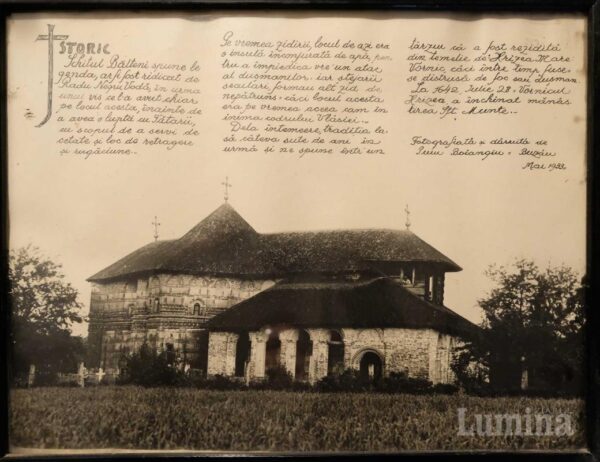 ISTORIC
Schitul Bălteni spune le
genda, ar fi fost ridicat de
Radu Negru Vodă, în urma
unui vis ce l-a avut, chiar
pe locul acesta, înainte de
a avea o luptă cu Tătarii,
cu scopul de a servi de
cetate și loc de retragere
și rugăciune...
Pe vremea zidirii, locul de azi era
o insulă înconjurată de apă, pen
tru a împiedica vre un atac
al dușmanilor, iar stejarii
seculari formau alt zid de
nepătruns; căci locul acesta
era pe vremea aceea cam în
inima codrului Vlăsiei...
Dela întemeere, tradiția la
să câteva sute de ani în
urmă și ne spune
târziu că a fost rezidită
din temelie de Hrizea Mare
Vornic, căci între timp fuse-
se distrusă de foc sau dușman.
La 1642 Iulie 28, Vornicul
Hrizea a închinat mănăs
tirea Sft. Munte...
Fotografiată și dăruită de
Puiu Boiangiu - Buzău
Mai 1933
Lumina